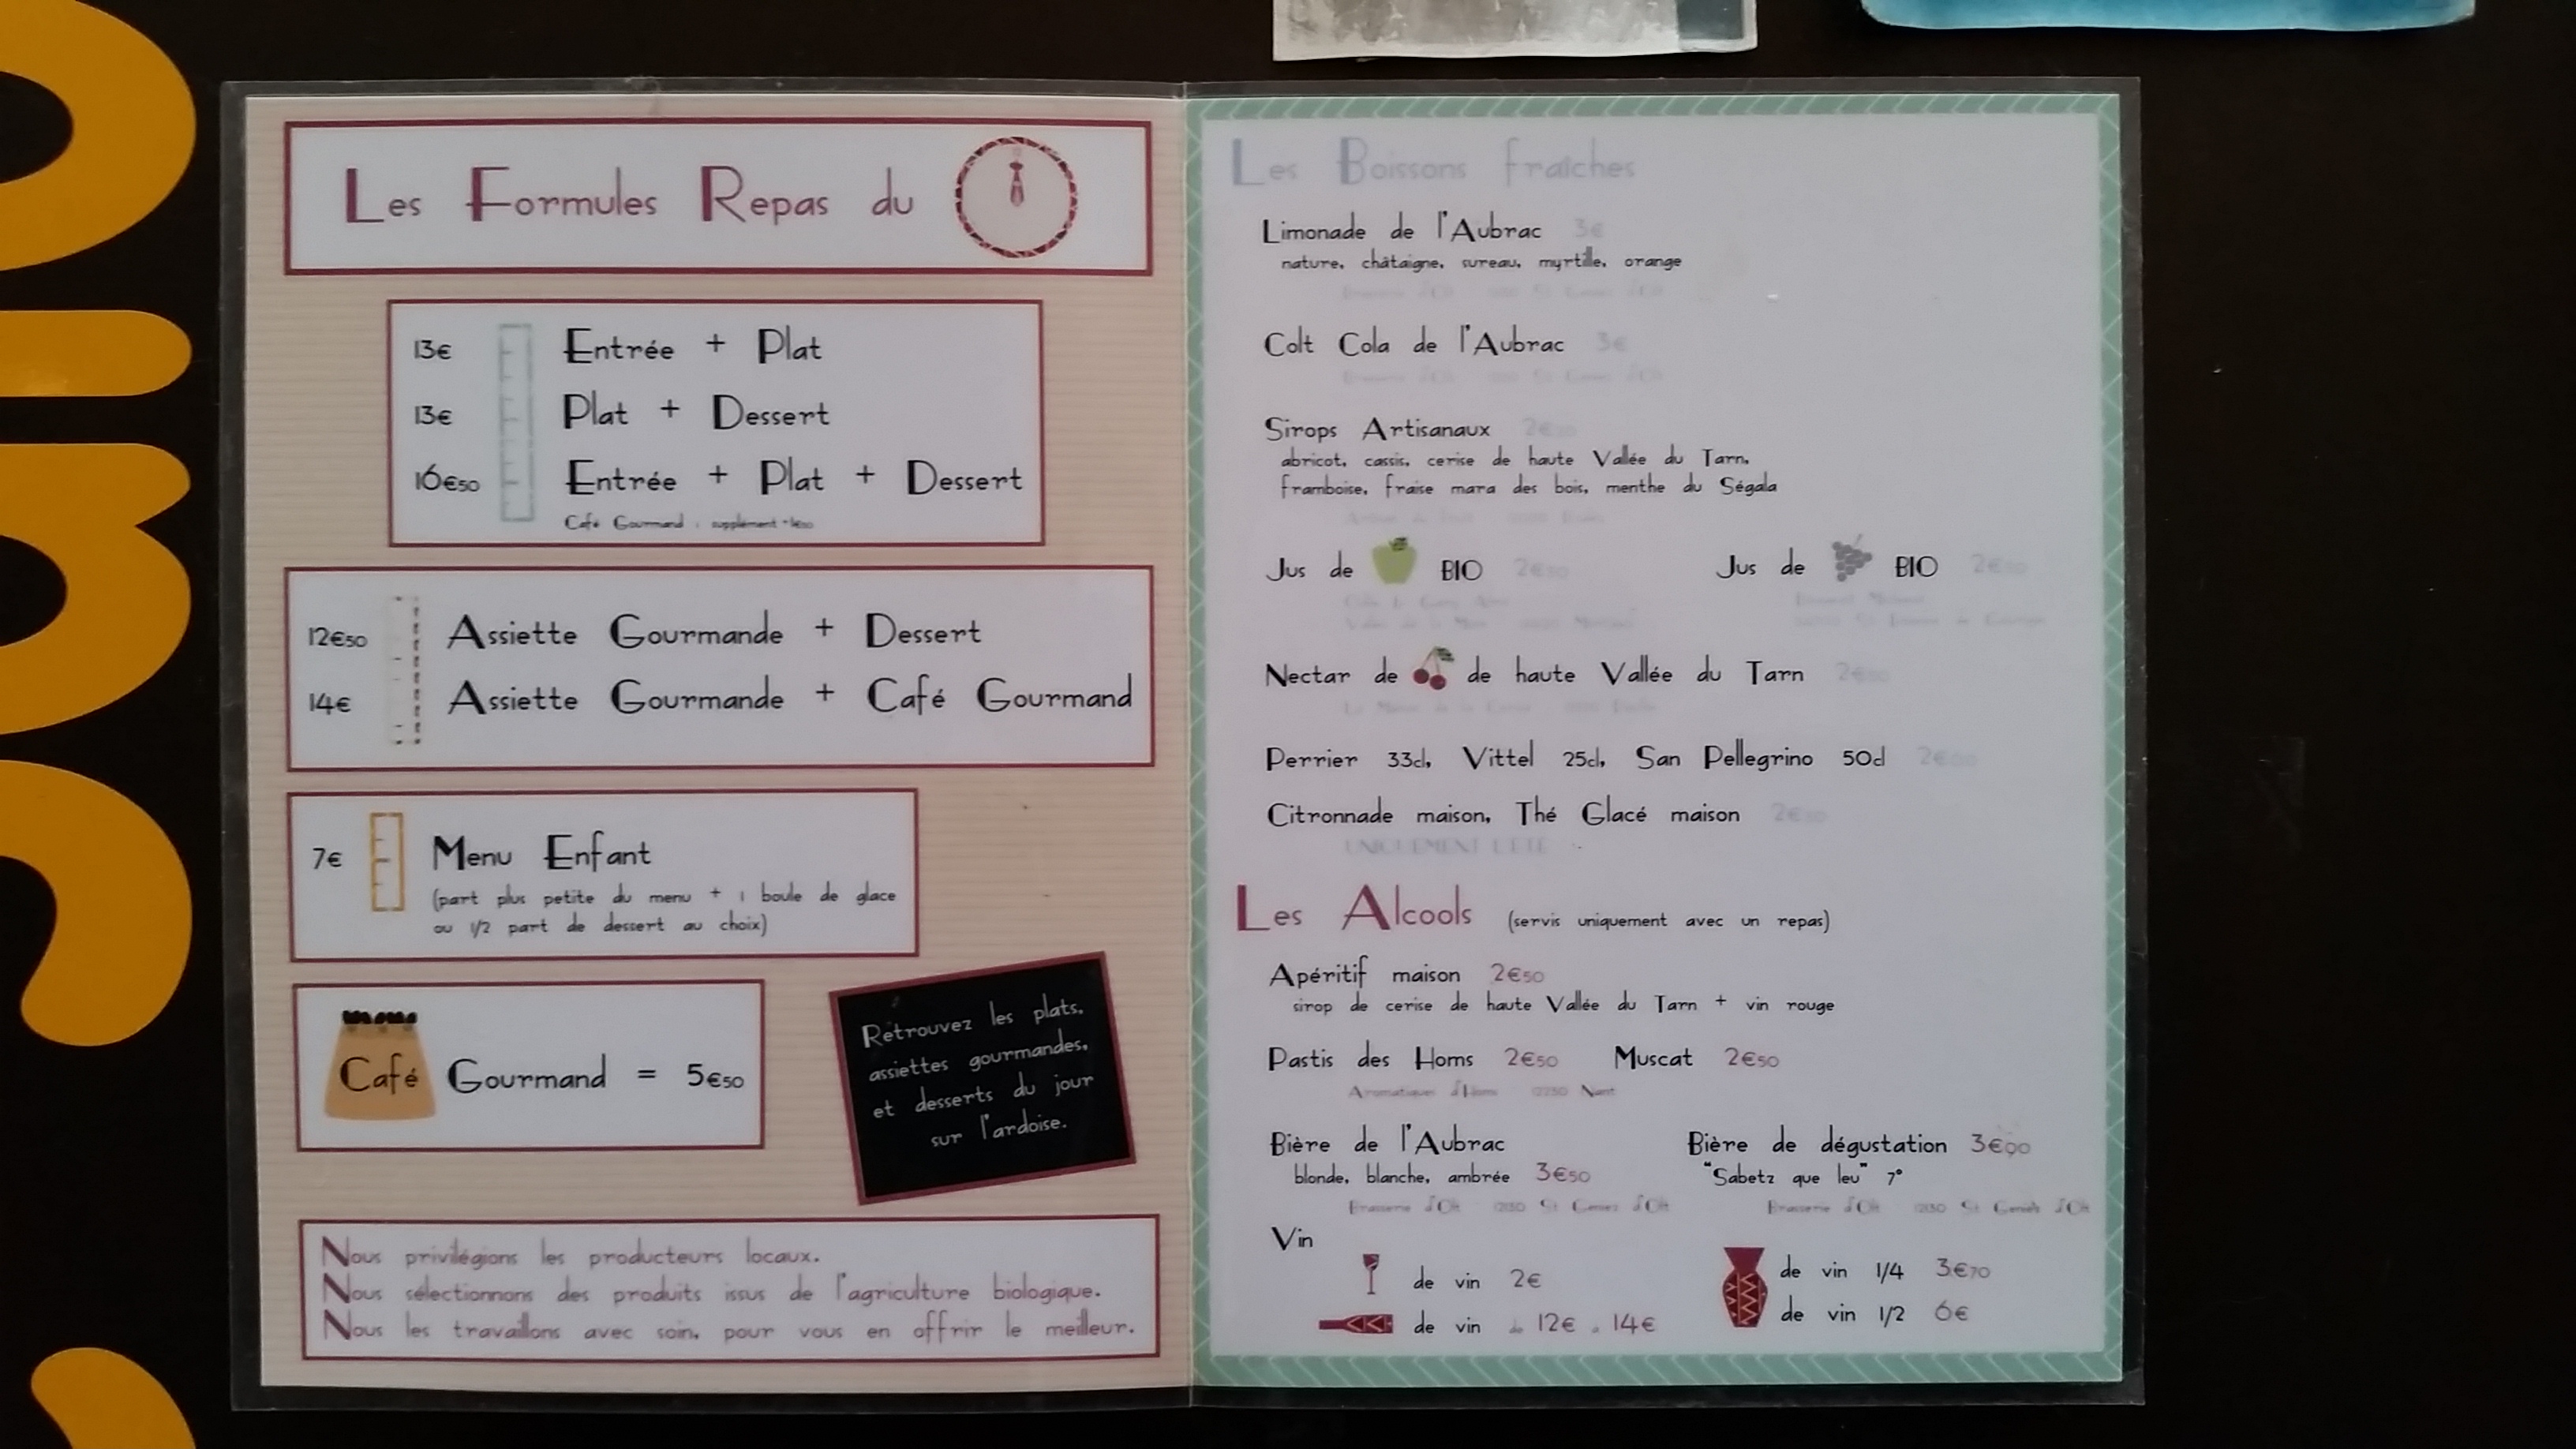 Les Formules Repas du
13€ Entrée + Plat
13€ Plat + Dessert
16€50 Entrée + Plat + Dessert
Café Gourmand : supplément +1€50
12€50 Assiette Gourmande + Dessert
14€ Assiette Gourmande + Café Gourmand
7€ Menu Enfant
(part plus petite du menu + 1 boule de glace
ou 1/2 part de dessert au choix)
Café Gourmand = 5€50
Retrouvez les plats,
assiettes gourmandes,
et desserts du jour
sur l'ardoise.
Nous privilégions les producteurs locaux.
Nous sélectionnons des produits issus de l'agriculture biologique.
Nous les travaillons avec soin, pour vous en offrir le meilleur.
Les Boissons fraîches
Limonade de l'Aubrac 3€
nature, châtaigne, sureau, myrtille, orange
Colt Cola de l'Aubrac 3€
Sirops Artisanaux
abricot, cassis, cerise de haute Vallée du Tarn,
framboise, fraise mara des bois, menthe du Ségala
Jus de BIO 2€50 Jus de BIO
Nectar de de haute Vallée du Tarn
Perrier 33cl, Vittel 25cl, San Pellegrino 50cl
Citronnade maison, Thé Glacé maison
UNIQUEMENT L'ÉTÉ
Les Alcools (servis uniquement avec un repas)
Apéritif maison 2€50
sirop de cerise de haute Vallée du Tarn + vin rouge
Pastis des Homs 2€50 Muscat 2€50
Aromatiques d'Homs 12230 Nant
Bière de l'Aubrac
blonde, blanche, ambrée 3€50
Brasserie d'Olt 12130 St Geniez d'Olt
Bière de dégustation 3€90
"Sabetz que leu" 7°
Brasserie d'Olt 12130 St Geniez d'Olt
Vin
de vin 2€
de vin de 12€ à 14€
de vin 1/4 3€70
de vin 1/2 6€